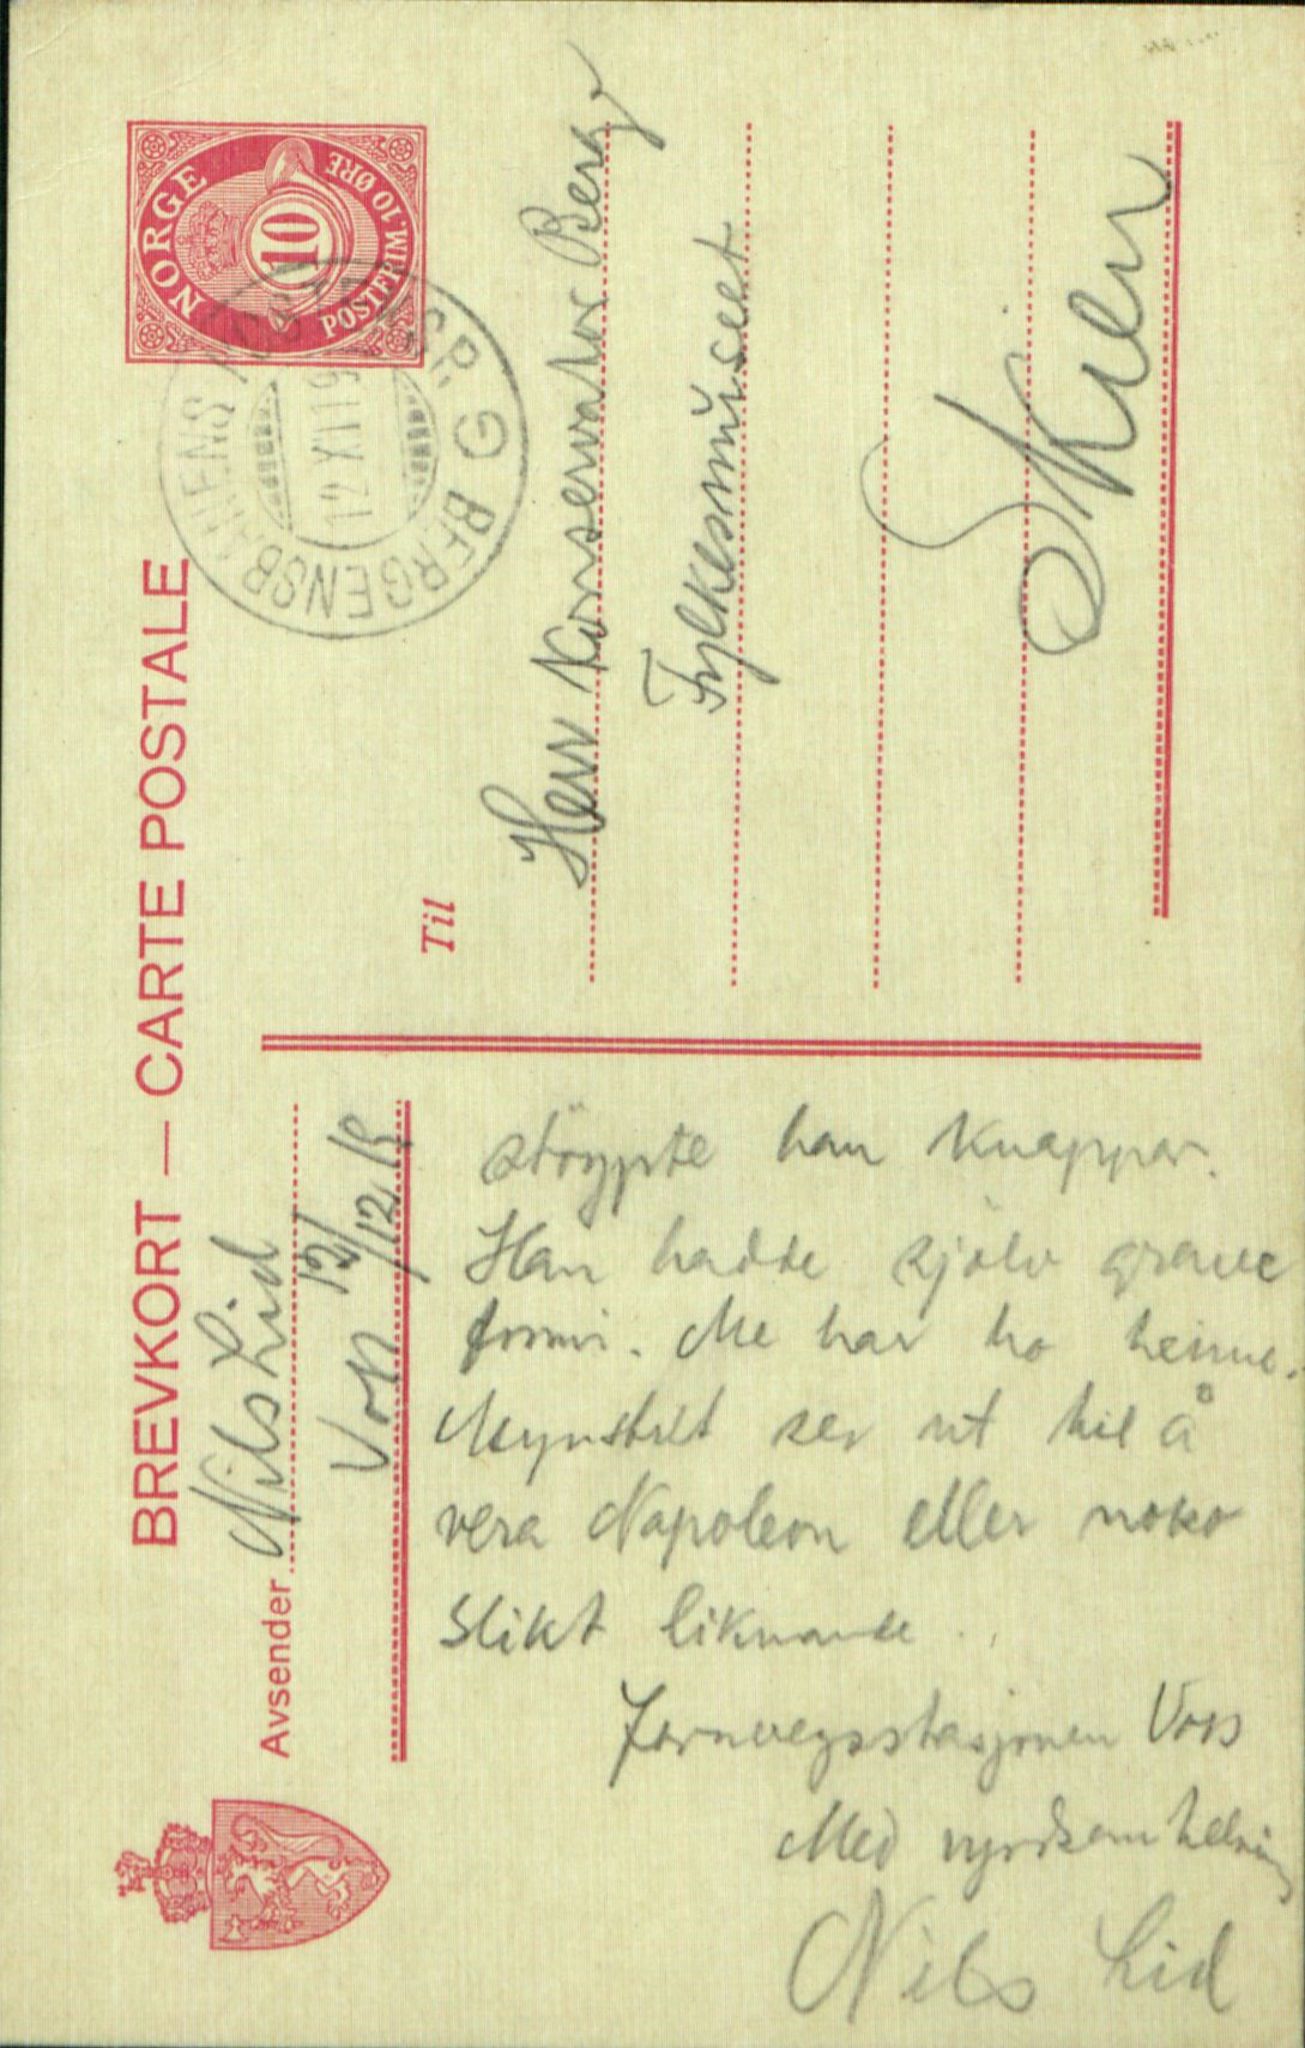 BREVKORT — CARTE POSTALE
NORGE
10
POSTFRIM. 10 ØRE
BERGENSBANENS POSTEKSP. G
12 XII 19
Avsender Nils Lid
Voss 12/12, 18
Til
Herr Konservator Berg
Fylkesmuseet
Skien
støypte han knappar.
Han hadde sjølv grave
formi. Me har ho heime.
Mynstret ser ut til å
vera Napoleon eller noko
slikt liknande.
Jarnvegsstasjonen Voss
Med vyrdsam helsing
Nils Lid